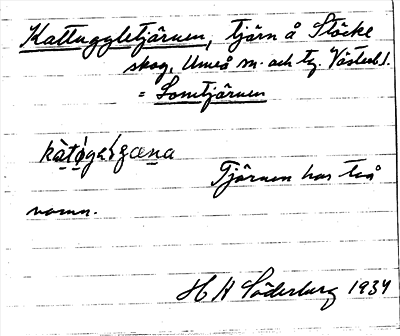 Kattuggletjärnen, tjärn å Stöcke
skog, Umeå sn. och tg. Västerb l.
= Somtjärnen
Tjärnen har två
namn.
H A Söderberg 1934